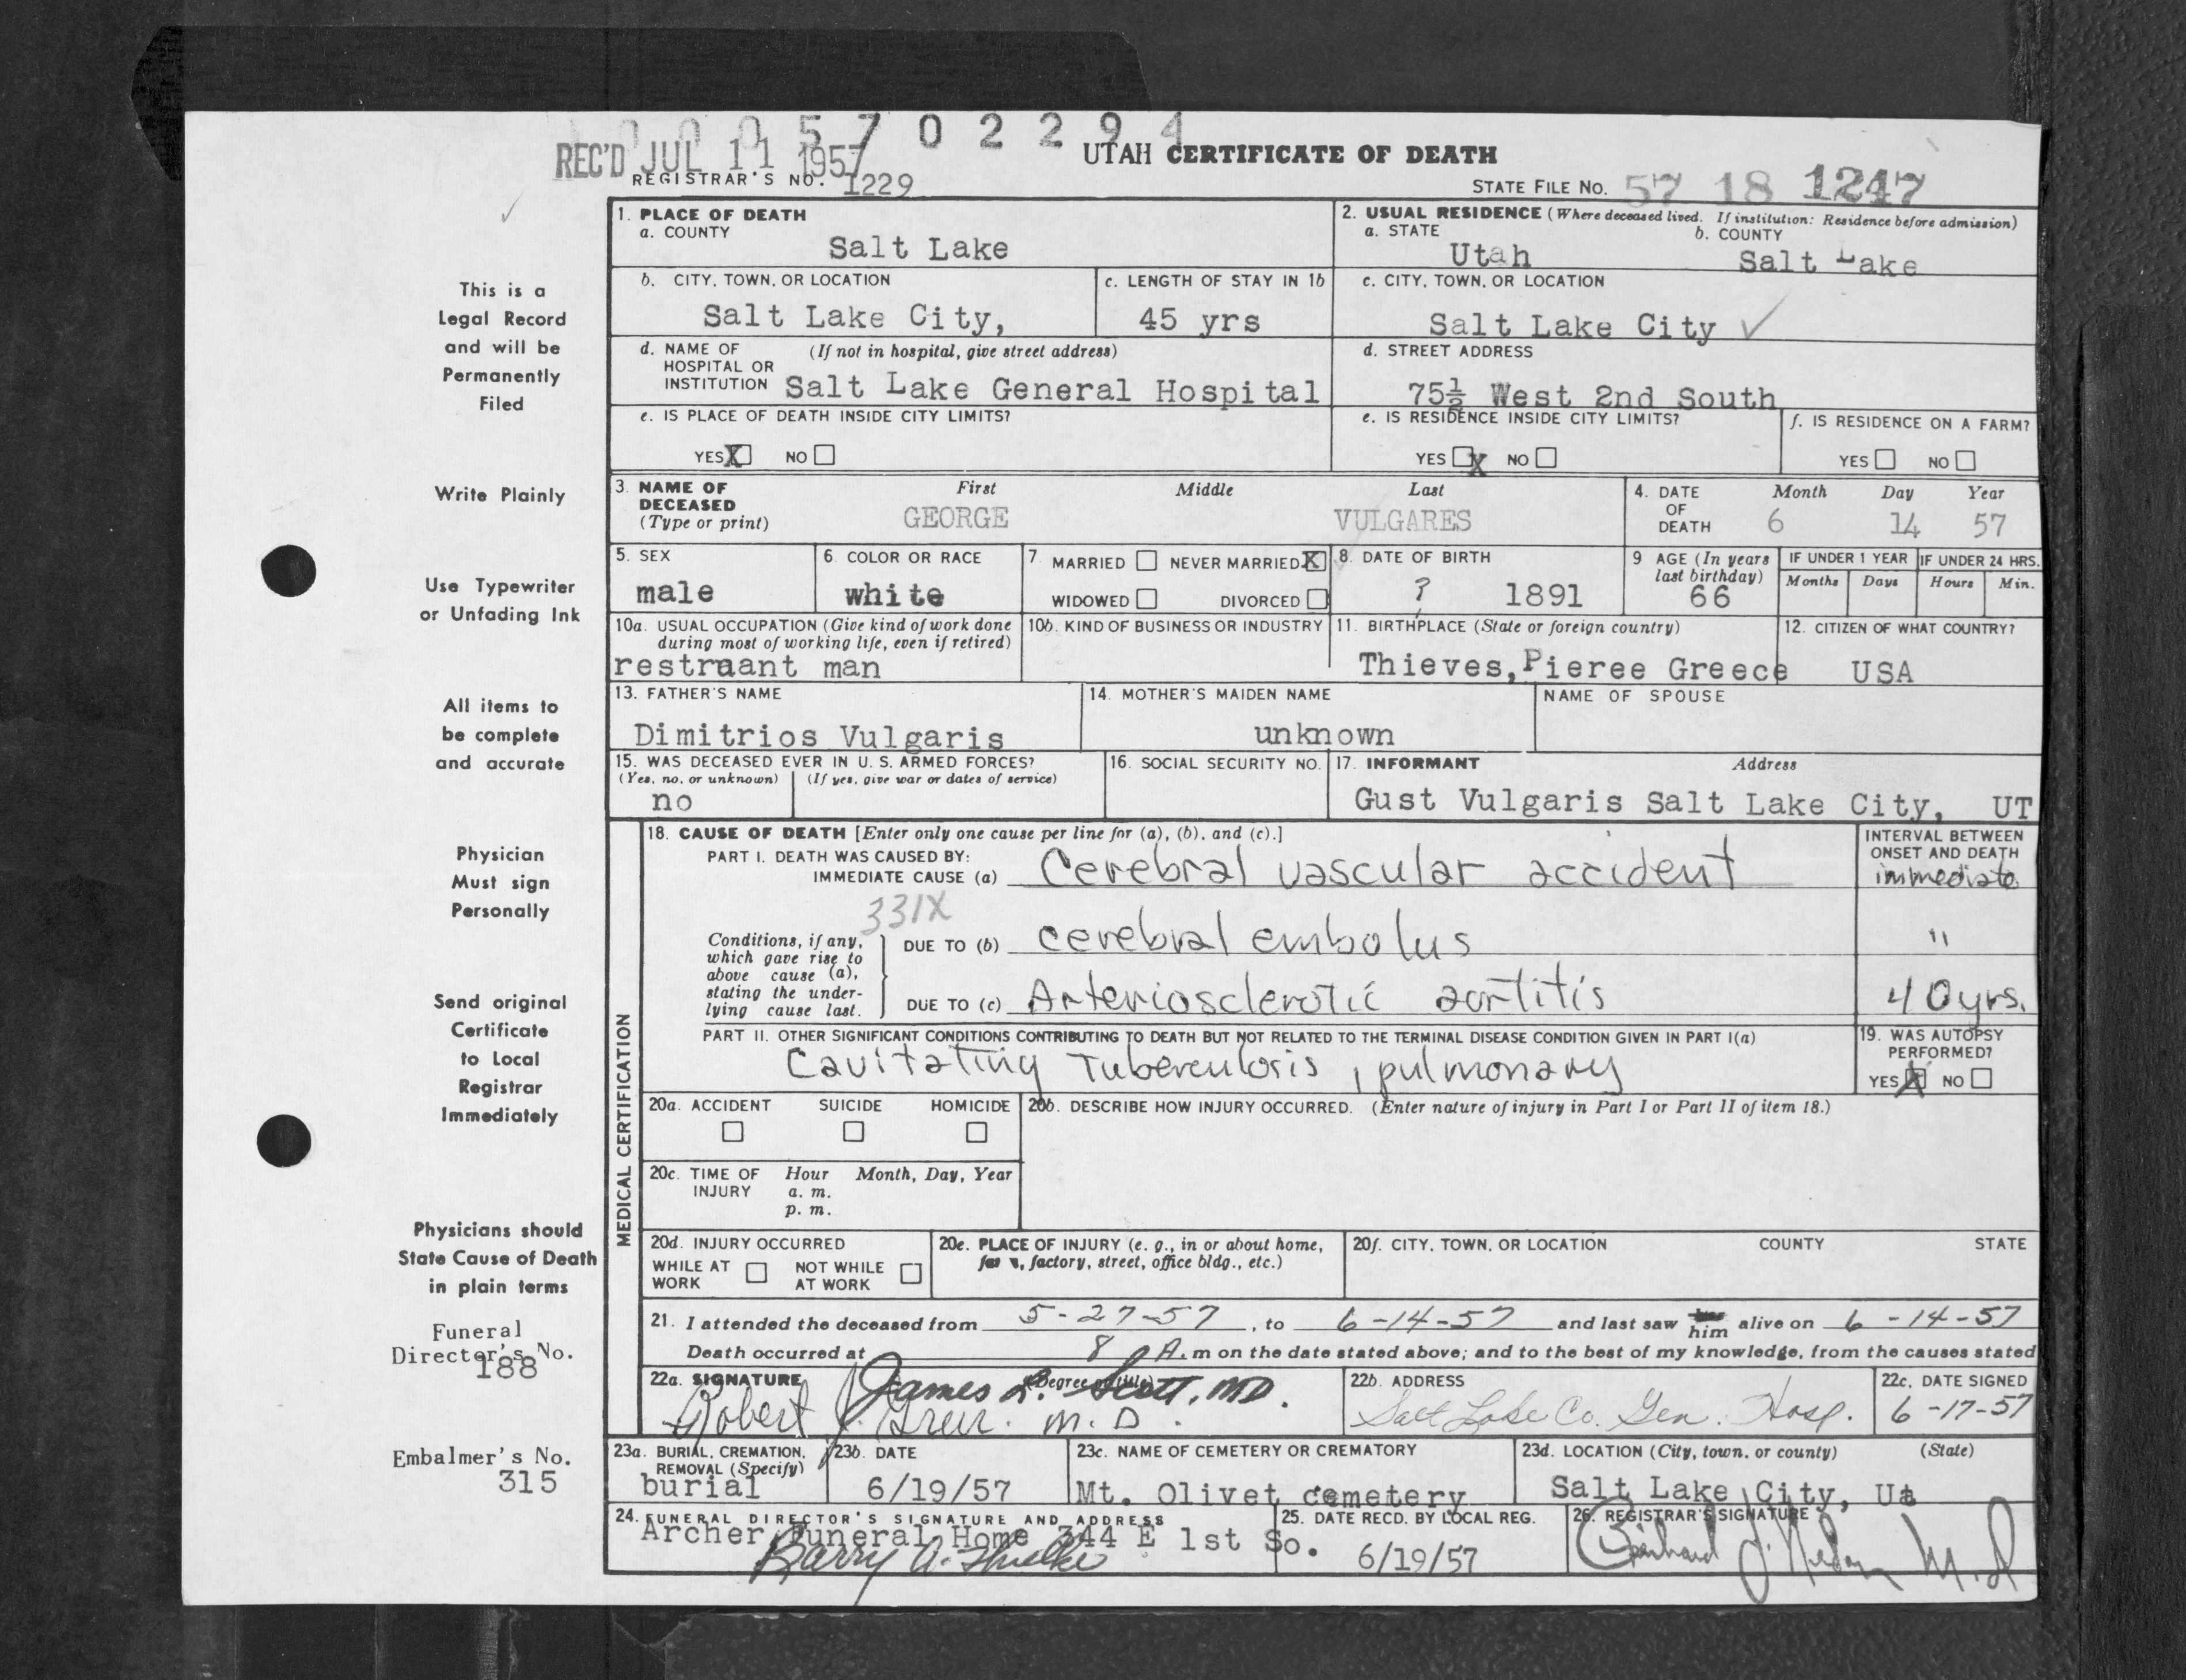 0005702294
REC'D JUL 11 1957
UTAH CERTIFICATE OF DEATH
REGISTRAR'S NO. 1229
STATE FILE NO. 57 18 1247
This is a
Legal Record
and will be
Permanently
Filed
Write Plainly
Use Typewriter
or Unfading Ink
All items to
be complete
and accurate
Physician
Must sign
Personally
Send original
Certificate
to Local
Registrar
Immediately
Physicians should
State Cause of Death
in plain terms
Funeral
Director's No.
188
Embalmer's No.
315
1. PLACE OF DEATH
a. COUNTY
Salt Lake
2. USUAL RESIDENCE (Where deceased lived. If institution: Residence before admission)
a. STATE b. COUNTY
Utah Salt Lake
b. CITY, TOWN, OR LOCATION
Salt Lake City,
c. LENGTH OF STAY IN 1b
45 yrs
c. CITY, TOWN, OR LOCATION
Salt Lake City ✓
d. NAME OF (If not in hospital, give street address)
HOSPITAL OR
INSTITUTION Salt Lake General Hospital
d. STREET ADDRESS
75½ West 2nd South
e. IS PLACE OF DEATH INSIDE CITY LIMITS?
YES X NO
e. IS RESIDENCE INSIDE CITY LIMITS?
YES X NO
f. IS RESIDENCE ON A FARM?
YES NO
3. NAME OF First Middle Last
DECEASED
(Type or print) GEORGE VULGARES
4. DATE Month Day Year
OF
DEATH 6 14 57
5. SEX
male
6. COLOR OR RACE
white
7. MARRIED NEVER MARRIED X
WIDOWED DIVORCED
8. DATE OF BIRTH
? 1891
9 AGE (In years
last birthday)
66
IF UNDER 1 YEAR IF UNDER 24 HRS.
Months Days Hours Min.
10a. USUAL OCCUPATION (Give kind of work done
during most of working life, even if retired)
restruant man
10b. KIND OF BUSINESS OR INDUSTRY
11. BIRTHPLACE (State or foreign country)
Thieves, Pieree Greece
12. CITIZEN OF WHAT COUNTRY?
USA
13. FATHER'S NAME
Dimitrios Vulgaris
14. MOTHER'S MAIDEN NAME
unknown
NAME OF SPOUSE
15. WAS DECEASED EVER IN U. S. ARMED FORCES?
(Yes, no, or unknown) (If yes, give war or dates of service)
no
16. SOCIAL SECURITY NO.
17. INFORMANT Address
Gust Vulgaris Salt Lake City, UT
MEDICAL CERTIFICATION
18. CAUSE OF DEATH [Enter only one cause per line for (a), (b), and (c).]
PART I. DEATH WAS CAUSED BY:
IMMEDIATE CAUSE (a) Cerebral vascular accident
INTERVAL BETWEEN
ONSET AND DEATH
immediate
331X
Conditions, if any,
which gave rise to
above cause (a),
stating the under-
lying cause last.
DUE TO (b) cerebral embolus "
DUE TO (c) Arteriosclerotic aortitis 40 yrs.
PART II. OTHER SIGNIFICANT CONDITIONS CONTRIBUTING TO DEATH BUT NOT RELATED TO THE TERMINAL DISEASE CONDITION GIVEN IN PART I(a)
Cavitating Tuberculosis, pulmonary
19. WAS AUTOPSY
PERFORMED?
YES X NO
20a. ACCIDENT SUICIDE HOMICIDE
20b. DESCRIBE HOW INJURY OCCURRED. (Enter nature of injury in Part I or Part II of item 18.)
20c. TIME OF Hour Month, Day, Year
INJURY a. m.
p. m.
20d. INJURY OCCURRED
WHILE AT NOT WHILE
WORK AT WORK
20e. PLACE OF INJURY (e. g., in or about home,
factory, street, office bldg., etc.)
20f. CITY, TOWN, OR LOCATION COUNTY STATE
21. I attended the deceased from 5-27-57, to 6-14-57 and last saw him alive on 6-14-57
Death occurred at 8 A. m on the date stated above; and to the best of my knowledge, from the causes stated
22a. SIGNATURE (Degree or title)
James L. Scott, MD.
Robert M.D.
22b. ADDRESS
Salt Lake Co. Gen. Hosp.
22c. DATE SIGNED
6-17-57
23a. BURIAL, CREMATION,
REMOVAL (Specify)
burial
23b. DATE
6/19/57
23c. NAME OF CEMETERY OR CREMATORY
Mt. Olivet cemetery
23d. LOCATION (City, town, or county) (State)
Salt Lake City, Ut
24. FUNERAL DIRECTOR'S SIGNATURE AND ADDRESS
Archer Funeral Home 344 E 1st So.
Barry A.
25. DATE RECD. BY LOCAL REG.
6/19/57
26. REGISTRAR'S SIGNATURE
M.D